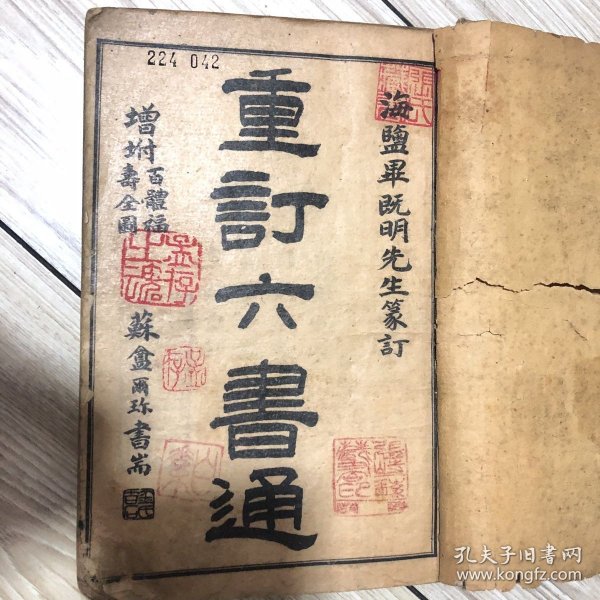 224 042
海鹽畢既明先生篆訂
重訂六書通
增坿百體福
壽全圖
蘇盦爾珎書耑
孔夫子旧书网
www.kongfz.com